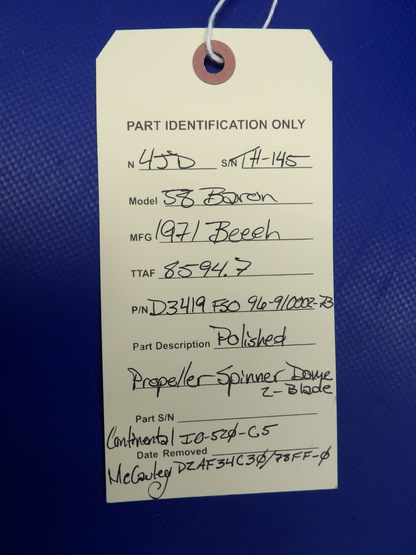 PART IDENTIFICATION ONLY
N 4JD S/N TH-145
Model 58 Baron
MFG 1971 Beech
TTAF 8594.7
P/N D3419 FSO 96-910002-23
Part Description Polished
Propeller Spinner Dome
2-Blade
Part S/N
Continental IO-520-C5
Date Removed
McCauley D2AF34C30/78FF-0